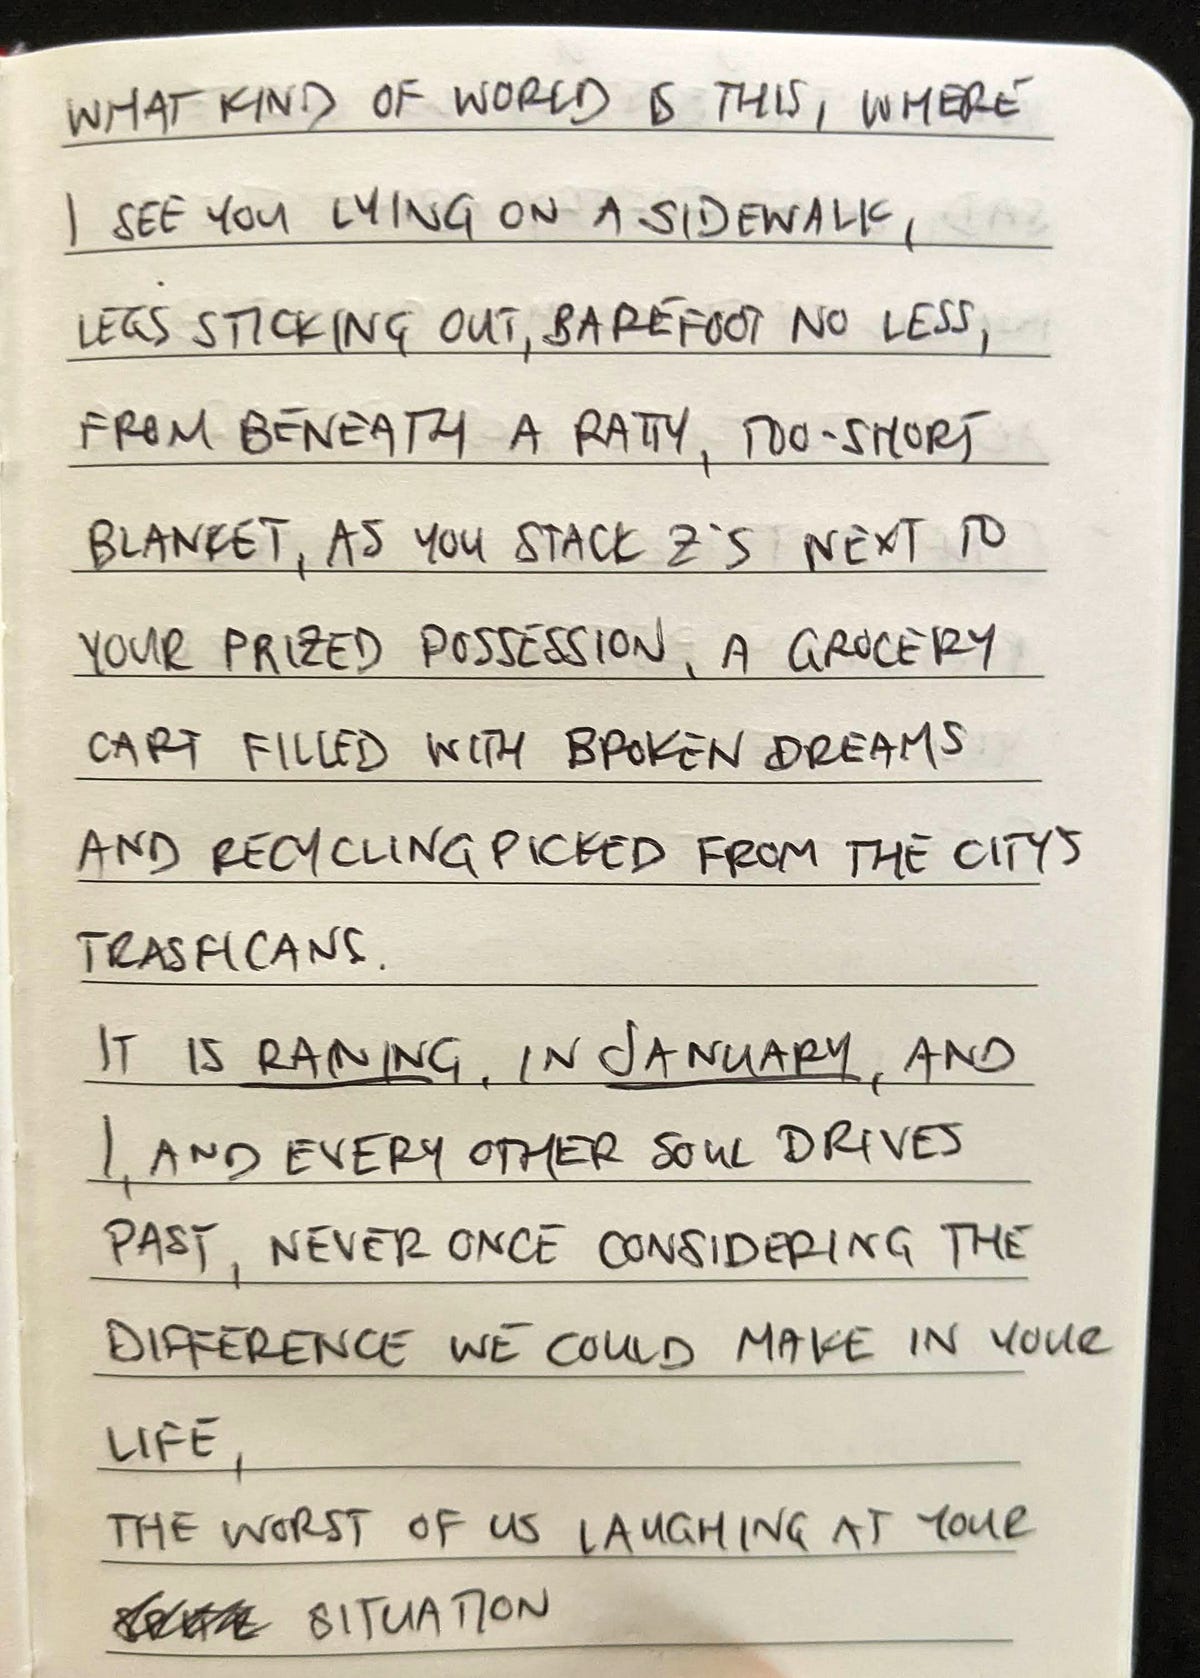 WHAT KIND OF WORLD IS THIS, WHERE
I SEE YOU LYING ON A SIDEWALK,
LEGS STICKING OUT, BAREFOOT NO LESS,
FROM BENEATH A RATTY, TOO-SHORT
BLANKET, AS YOU STACK Z'S NEXT TO
YOUR PRIZED POSSESSION, A GROCERY
CART FILLED WITH BROKEN DREAMS
AND RECYCLING PICKED FROM THE CITY'S
TRASHCANS.
IT IS RAINING, IN JANUARY, AND
I, AND EVERY OTHER SOUL DRIVES
PAST, NEVER ONCE CONSIDERING THE
DIFFERENCE WE COULD MAKE IN YOUR
LIFE,
THE WORST OF US LAUGHING AT YOUR
SITUATION